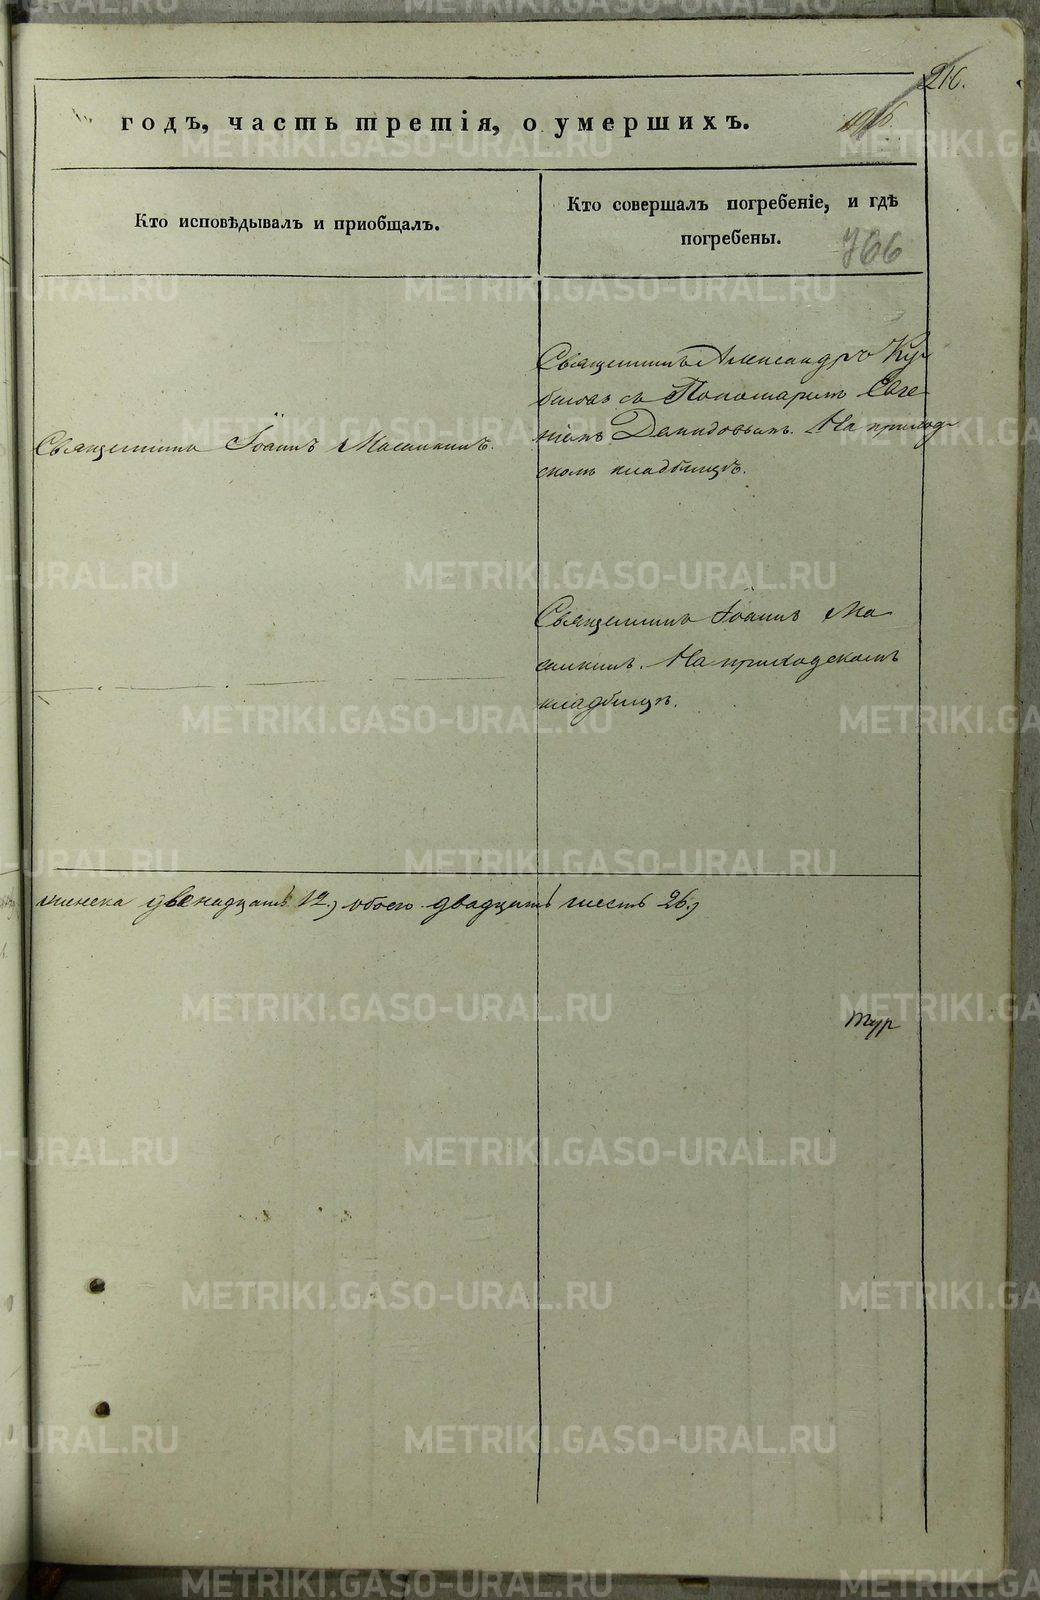 216.
годъ, часть третія, о умершихъ.
196
Кто исповѣдывалъ и приобщалъ.
Кто совершалъ погребеніе, и гдѣ
погребены.
766
Священникъ Іоаннъ Масалкинъ.
Священникъ Александръ Ку
съ Пономаремъ Евге
ніемъ Демидовымъ. На приход
скомъ кладбищѣ.
Священникъ Іоаннъ Ма
салкинъ. На приходскомъ
кладбищѣ.
женска двенадцать 12, обоего двадцать шесть 26,
METRIKI.GASO-URAL.RU